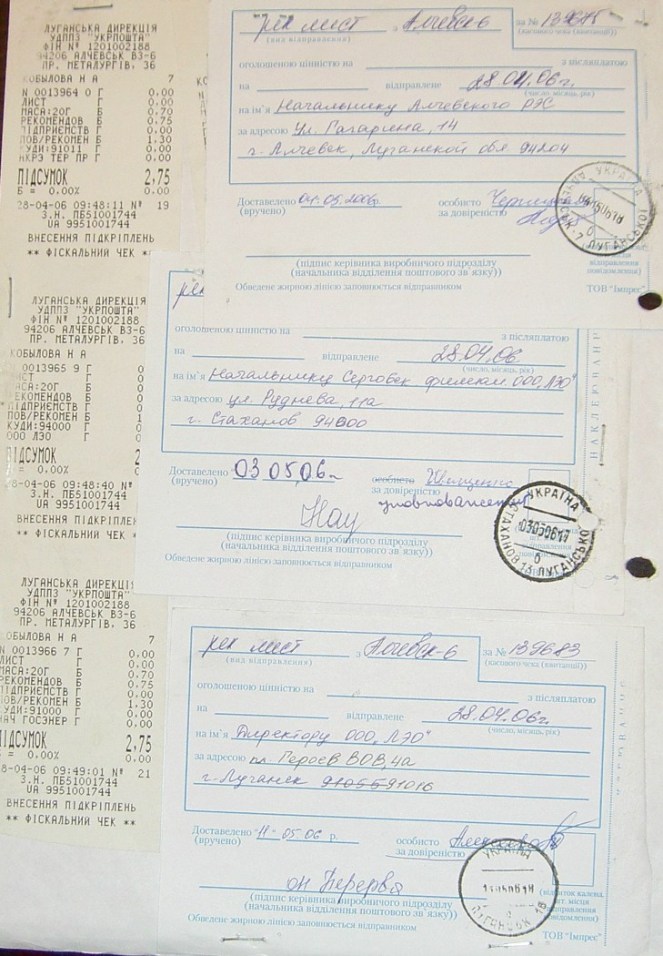 ЛУГАНСЬКА ДИРЕКЦІЯ
УДППЗ "УКРПОШТА"
ФІН № 1201002188
94206 АЛЧЕВСЬК ВЗ-6
ПР. МЕТАЛУРГІВ, 36
КОБЫЛОВА Н А 7
N 0013964 0 Г 0.00
ЛИСТ Г 0.00
МАСА:20Г Б 0.70
РЕКОМЕНДОВ Б 0.75
ПІДПРИЄМСТВ Г 0.00
ПОВ/РЕКОМЕН Б 1.30
КУДИ:91011 Г 0.00
НКРЭ ТЕР ПР Г 0.00
ПІДСУМОК 2,75
Б = 0.00% 0.00
28-04-06 09:48:11 № 19
З.Н. ПБ51001744
UA 9951001744
ВНЕСЕННЯ ПІДКРІПЛЕНЬ
** ФІСКАЛЬНИЙ ЧЕК **
рек лист з Алчевск-6 за № 139675
(вид відправлення) (касового чека (квитанції))
оголошеною цінністю на з післяплатою
на відправлене 28.04.06г.
(число, місяць, рік)
на ім'я Начальнику Алчевского РЭС
за адресою Ул. Гагарина, 14
г. Алчевск, Луганской обл. 94204
Доставлено 04.05.2006г. особисто
(вручено) за довіреністю
(підпис керівника виробничого підрозділу
(начальника відділення поштового зв'язку))
Обведене жирною лінією заповнюється відправником ТОВ "Імпрес"
УКРАЇНА
ЛУГАНСЬКА ДИРЕКЦІЯ
УДППЗ "УКРПОШТА"
ФІН № 1201002188
94206 АЛЧЕВСЬК ВЗ-6
ПР. МЕТАЛУРГІВ, 36
КОБЫЛОВА Н А
0013965 9 Г 0
ЛИСТ Г 0
МАСА:20Г Б 0
РЕКОМЕНДОВ Б 0
ПІДПРИЄМСТВ Г 0
ПОВ/РЕКОМЕН Б 1
КУДИ:94000 Г 0
ООО ЛЭО Г 0
ПІДСУМОК 2
= 0.00% 0
28-04-06 09:48:40 №
З.Н. ПБ51001744
UA 9951001744
ВНЕСЕННЯ ПІДКРІПЛЕН
** ФІСКАЛЬНИЙ ЧЕК *
рек
оголошеною цінністю на з післяплатою
на відправлене 28.04.06.
(число, місяць, рік)
на ім'я Начальнику филиал ООО "ЛЭО"
за адресою ул. Руднева, 11а
г. Стаханов 94000
Доставлено 03 05.06г. особисто
(вручено) за довіреністю
(підпис керівника виробничого підрозділу
(начальника відділення поштового зв'язку))
Обведене жирною лінією заповнюється відправником
УКРАЇНА
030506 17
СТАХАНОВ 13 ЛУГАНСЬКОЇ
ЛУГАНСЬКА ДИРЕКЦІЯ
УДППЗ "УКРПОШТА"
ФІН № 1201002188
94206 АЛЧЕВСЬК ВЗ-6
ПР. МЕТАЛУРГІВ, 36
КОБЫЛОВА Н А 7
0013966 7 Г 0.00
ЛИСТ Г 0.00
МАСА:20Г Б 0.70
РЕКОМЕНДОВ Б 0.75
ПІДПРИЄМСТВ Г 0.00
ПОВ/РЕКОМЕН Б 1.30
КУДИ:91000 Г 0.00
НАЧ ГОСЭНЕР Г 0.00
ПІДСУМОК 2,75
= 0.00% 0.00
28-04-06 09:49:01 № 21
З.Н. ПБ51001744
UA 9951001744
ВНЕСЕННЯ ПІДКРІПЛЕНЬ
** ФІСКАЛЬНИЙ ЧЕК **
рек лист з Алчевск-6 за № 139683
(вид відправлення) (касового чека (квитанції))
оголошеною цінністю на з післяплатою
на відправлене 28.04.06г.
(число, місяць, рік)
на ім'я Директору ООО "ЛЭО"
за адресою пл. Героев ВОВ, 4а
г. Луганск
Доставлено 11 05.06 р. особисто
(вручено) за довіреністю
(підпис керівника виробничого підрозділу
(начальника відділення поштового зв'язку))
Обведене жирною лінією заповнюється відправником ТОВ "Імпрес"
УКРАЇНА